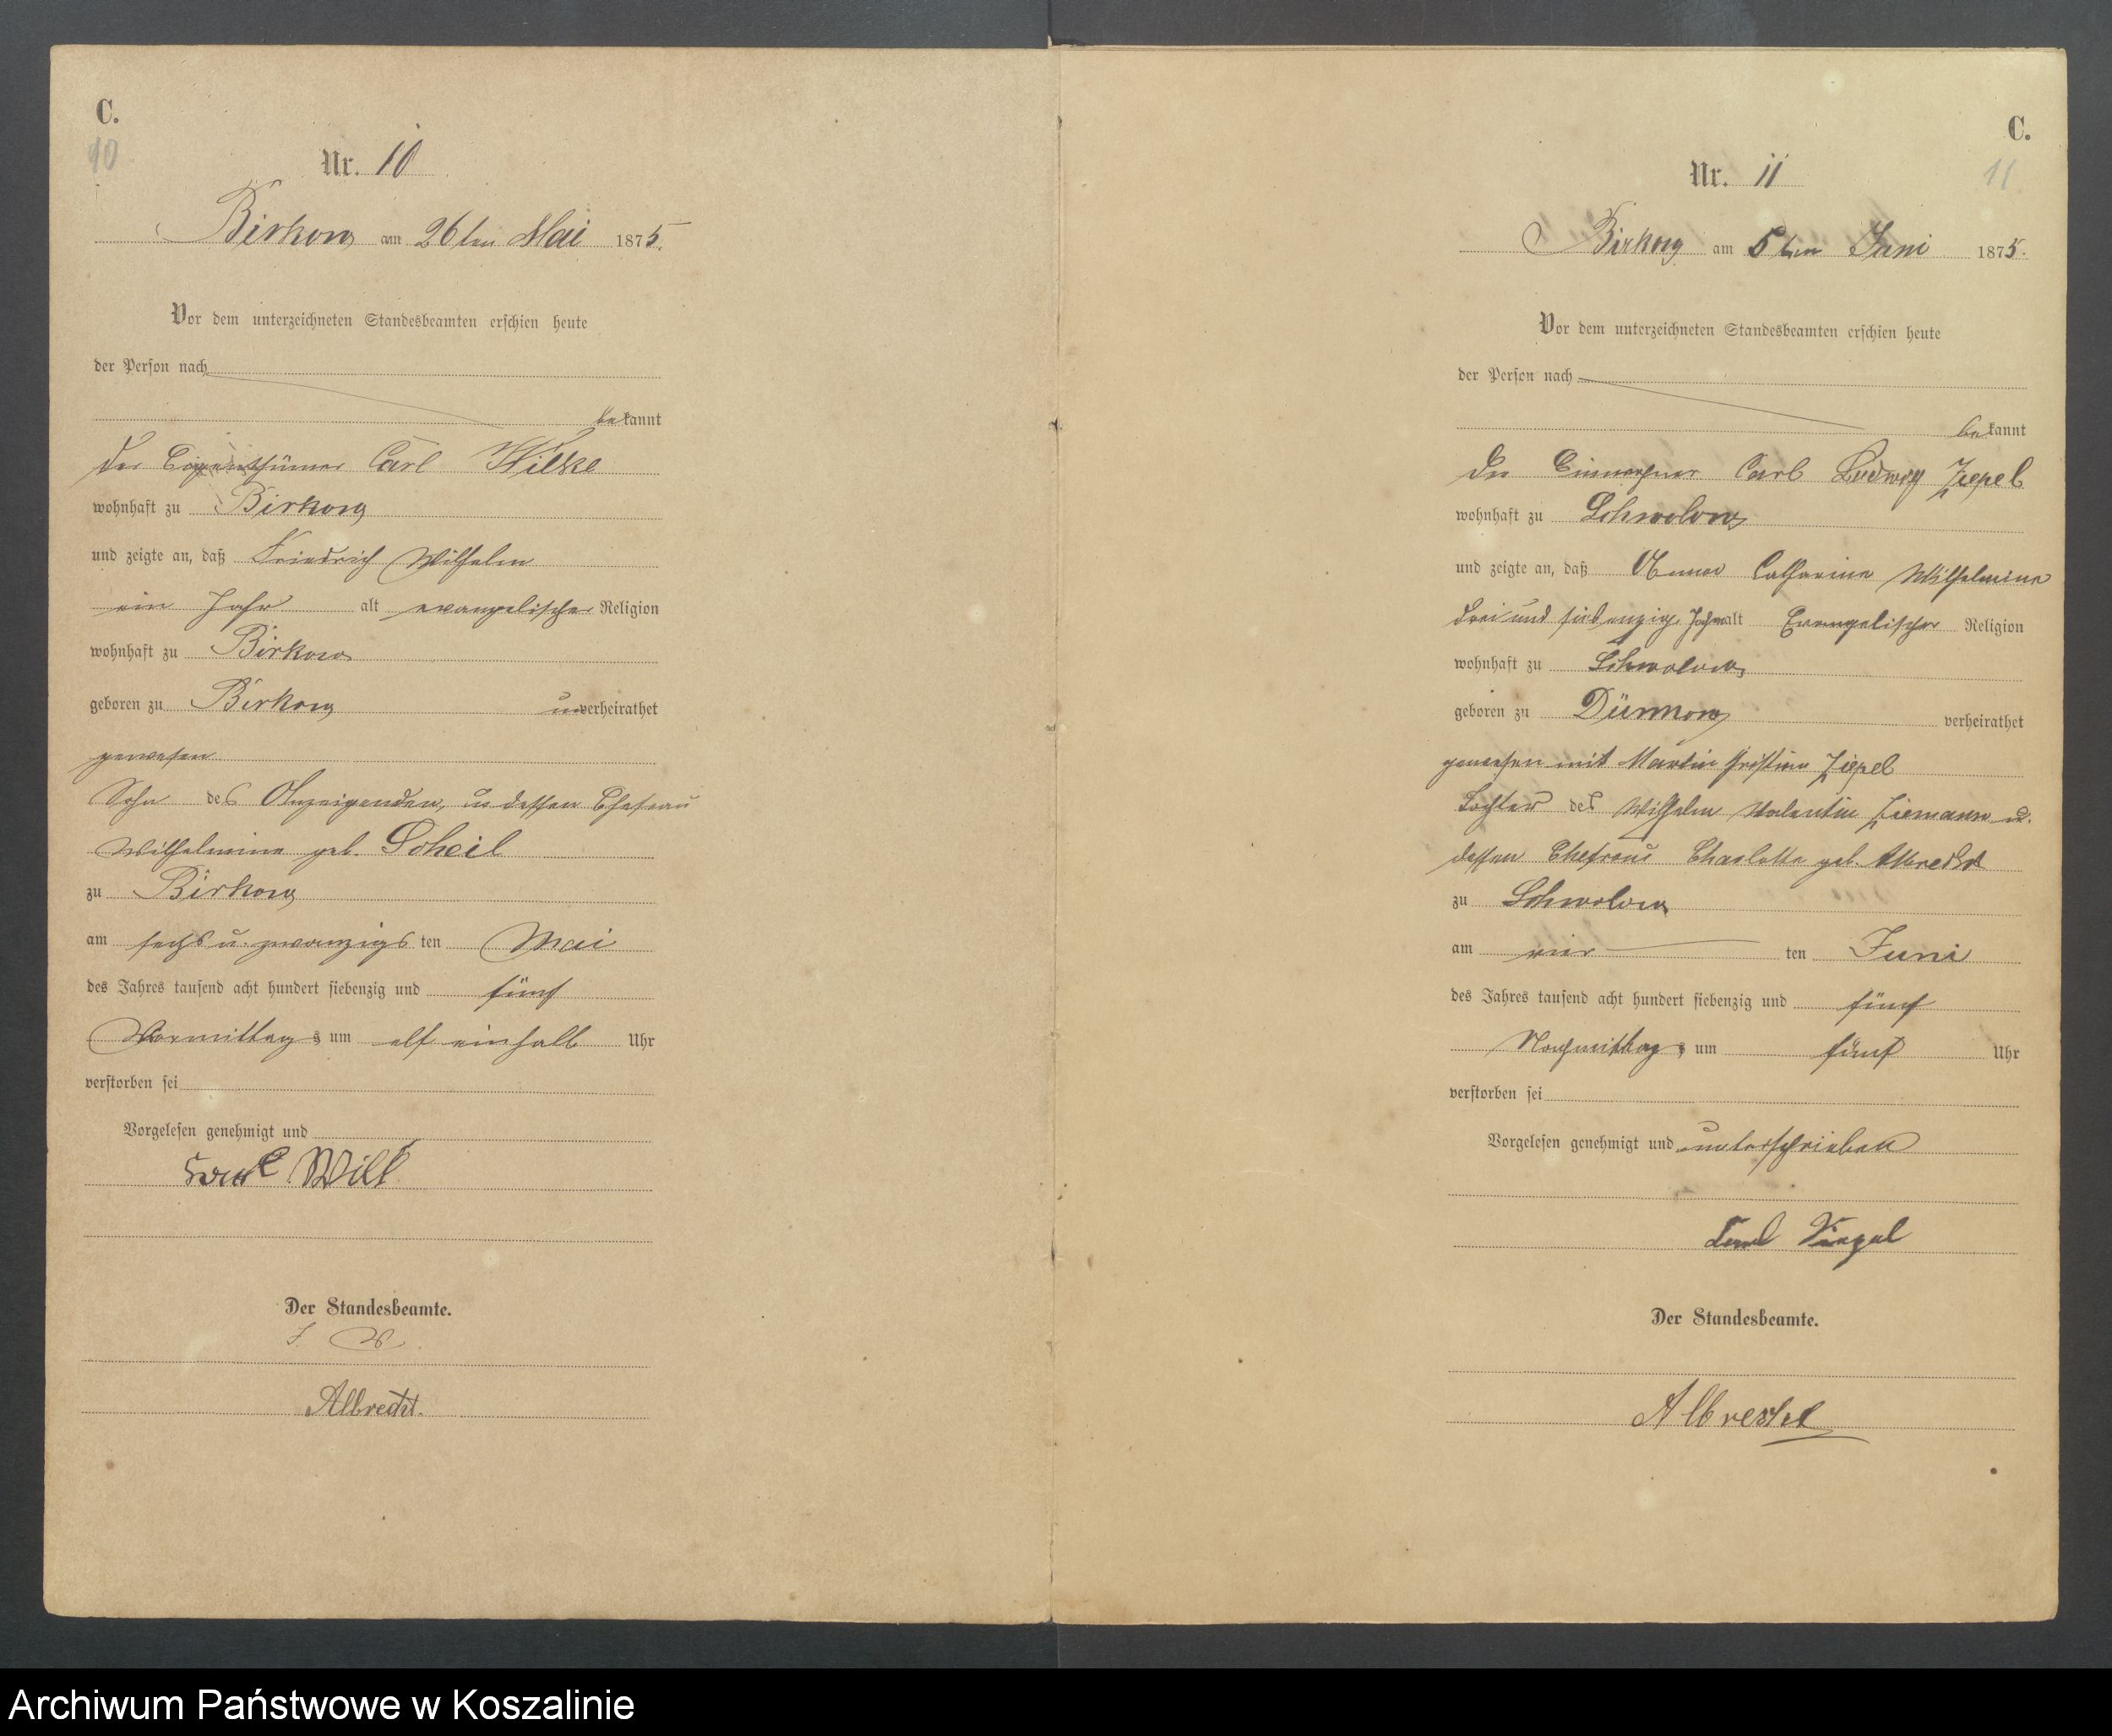 C.
10
Nr. 10
Birkow am 26ten Mai 1875.
Vor dem unterzeichneten Standesbeamten erschien heute
der Person nach
bekannt
der Eigenthümer Carl
wohnhaft zu Birkow
und zeigte an, daß Friedrich Wilhelm
ein Jahr alt evangelischer Religion
wohnhaft zu Birkow
geboren zu Birkow unverheirathet
gewesen
Sohn des Anzeigenden, u dessen Ehefrau
Wilhelmine geb. Scheil
zu Birkow
am sechs u. zwanzigs ten Mai
des Jahres tausend acht hundert siebenzig und fünf
Vormittags um elf einhalb Uhr
verstorben sei
Vorgelesen genehmigt und
Der Standesbeamte.
J. V.
Albrecht.
C.
11
Nr. 11
Birkow am 5ten Juni 1875.
Vor dem unterzeichneten Standesbeamten erschien heute
der Person nach
bekannt
der Einwohner Carl Ludwig Ziepel
wohnhaft zu Schwolow
und zeigte an, daß Anna Catharine Wilhelmine
drei und siebenzig Jahr alt Evangelischer Religion
wohnhaft zu Schwolow
geboren zu Dünnow verheirathet
gewesen mit Martin Ziepel
Tochter des Wilhelm Valentin Ziemann u.
dessen Ehefrau Charlotte geb. Albrecht
zu Schwolow
am vier ten Juni
des Jahres tausend acht hundert siebenzig und fünf
Nachmittags um fünf Uhr
verstorben sei
Vorgelesen genehmigt und unterschrieben
Carl
Der Standesbeamte.
Albrecht
Archiwum Państwowe w Koszalinie